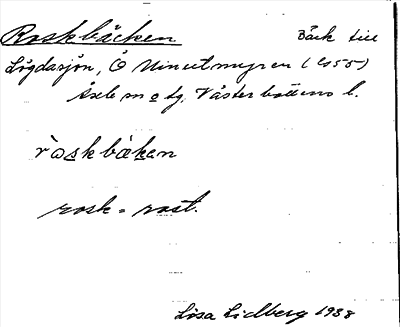 Roskbäcken Bäck till
Lögdasjön, Ö Minutmyren (Co 55)
Åsele m o tg, Västerbottens l.
ròskbäkan
rosk = rost.
Lisa Lidberg 1938